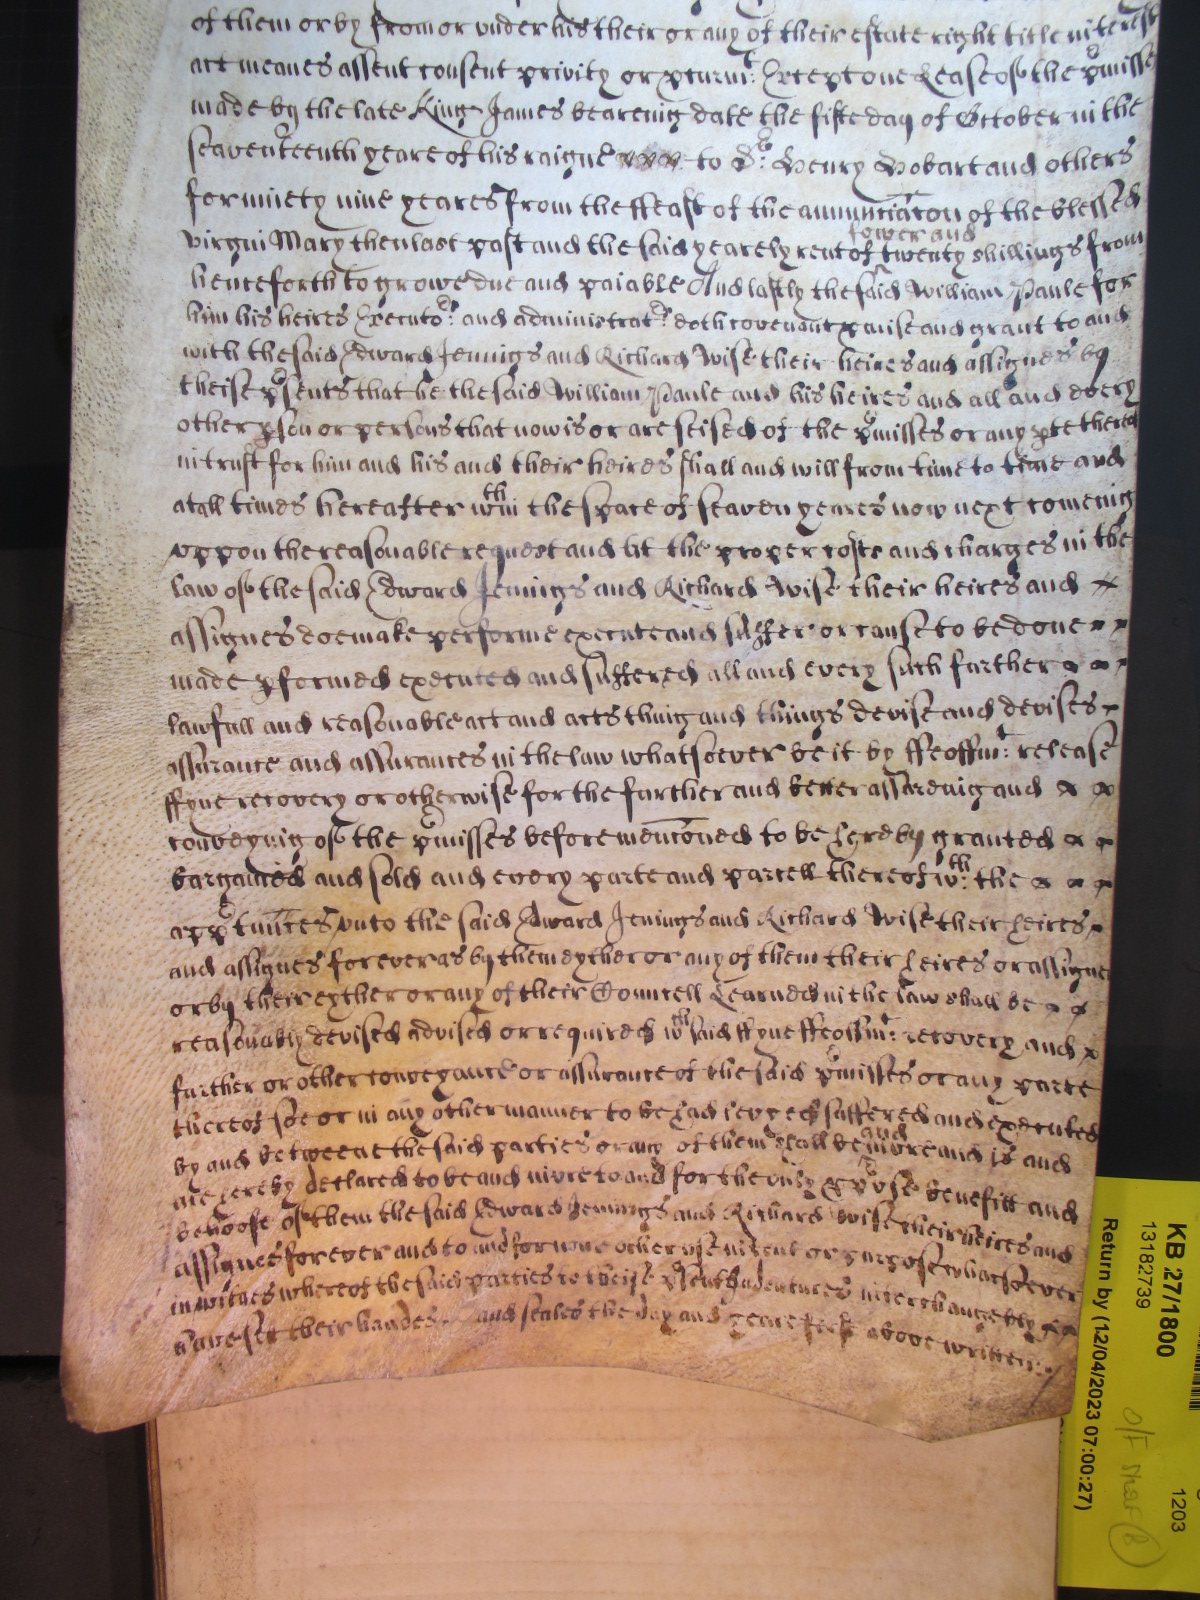 of them or by from or vnder his their or any of their estate right title interest
act meanes assent consent privity or pcurmt: Except one Lease of the pmisses
made by the late King James beareing date the fifte day of October in the
seaventeenth yeare of his raigne to Sr: Henry Hobart and others
for ninety nine yeares from the ffeast of the annunciacon of the blessed
virgin Mary then last past and the said yearely rent of fower and twenty shillings from
henceforth to growe due and paiable And lastly the said William Paule for
him his heires Executors: and administratrs: doth covenant pmise and grant to and
with the said Edward Jennings and Richard Wise their heires and assignes by
theise psents that he the said William Paule and his heires and all and every
other pson or persons that now is or are seised of the pmisses or any pte thereof
in trust for him and his and their heires shall and will from time to time and
at all times hereafter wthin the space of seaven yeares now next comeing
vppon the reasonable request and att the proper costs and charges in the
law of the said Edward Jennings and Richard Wise their heires and
assignes doe make performe execute and suffer or cause to be done
made pformed executed and suffered all and every such further
lawfull and reasonable act and acts thing and things devise and devises
assurance and assurances in the law whatsoever be it by ffeoffmt: release
ffyne recovery or otherwise for the further and better assureing and
conveying of the pmisses before mencõned to be hereby granted
bargained and sold and every parte and parcell thereof wth: the
apptunces vnto the said Edward Jenings and Richard Wise their heires
and assignes forever as by them eyther or any of them their heires or assignes
or by their eyther or any of their Councell Learned in the law shall be
reasonably devised advised or required wch said ffyne ffeoffmt: recovery and
further or other conveyance or assurance of the said pmisses or any parte
thereof soe or in any other manner to be had levyed suffered and executed
by and betweene the said parties or any of them shall be and inure and is and
are hereby declared to be and inure to and for the only ppose benefitt and
behoofe of them the said Edward Jennings and Richard Wise their heires and
assignes forever and to and for none other vse intent or purpose whatsoever
in witnes whereof the said parties to theise psent Indentures interchangebly
have sett their handes and seales the day and yeare first above written:.
KB 27/1800
13182739
Return by (12/04/2023 07:00:27)
1203